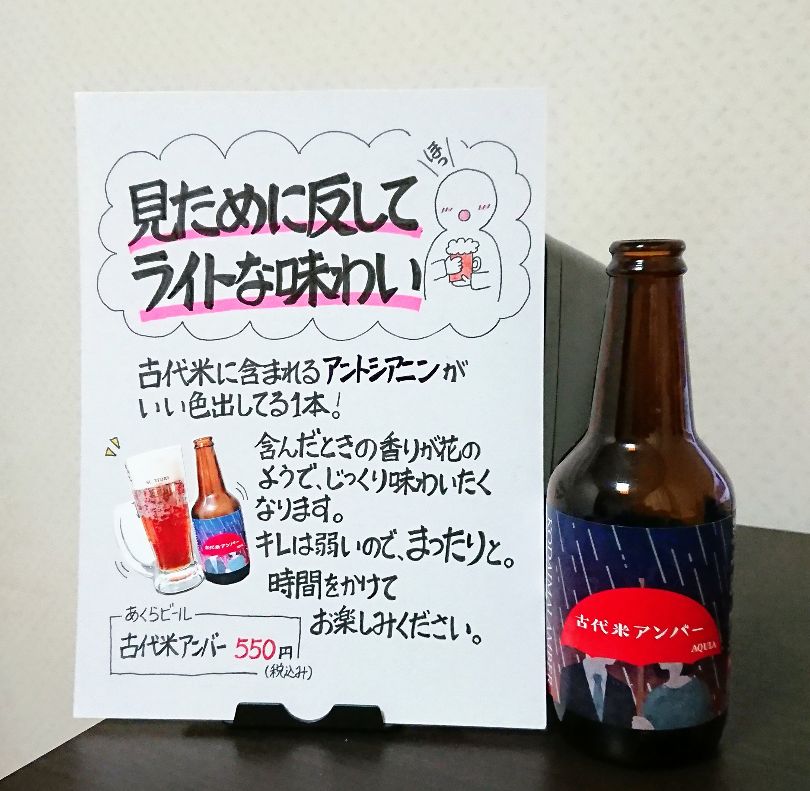 ほっ
見ために反して
ライトな味わい
古代米に含まれるアントシアニンが
いい色出してる1本!
含んだときの香りが花の
ようで、じっくり味わいたく
なります。
キレは弱いので、まったりと。
時間をかけて
お楽しみください。
あくらビール
古代米アンバー 550円
(税込み)
古代米アンバー
古代米アンバー
AQULA
KODAIMAI AMBER